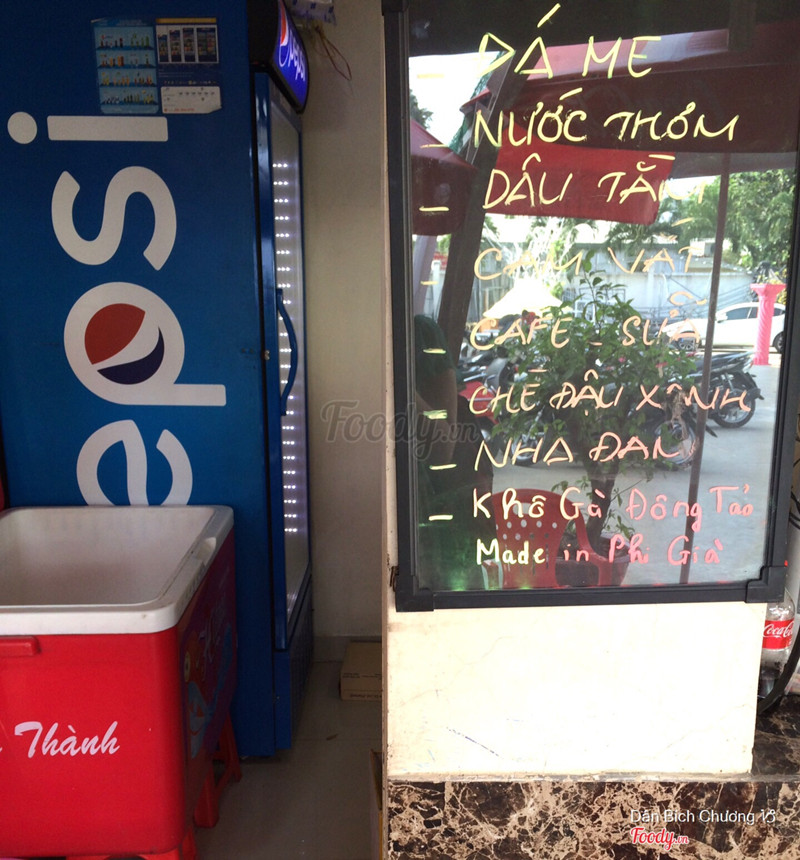 pepsi
epsi
ĐÁ ME
_ NƯỚC THƠM
_ DÂU TẰM
_ CAM VẮT
_ CAFE - SỮA
_ CHÈ ĐẬU XANH
_ NHA ĐAM
_ Khô Gà Đông Tảo
Made in Phi Già
Thành
Coca-Co
Foody.vn
Dần Bích Chương 13
Foody.vn